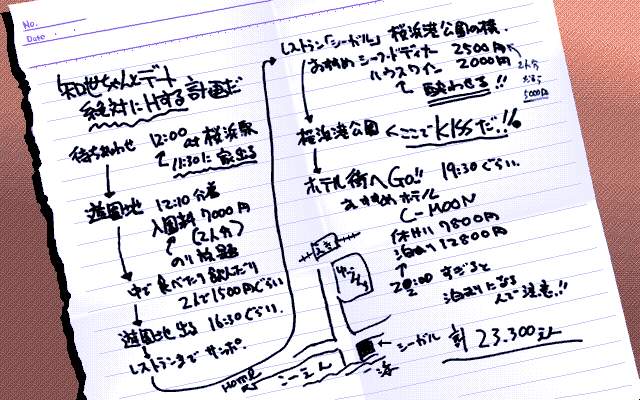 No.
Date
知世ちゃんとデート
絶対にHする計画だ
待ちあわせ 12:00 at 桜浜駅
11:30に家出る
遊園地 12:10 介着
入園料 7000円
(2人分)
のり放題
中で食べたり飲んだり
2人で1500円ぐらい
遊園地出る 16:30ぐらい.
レストランまでサンポ.
レストラン「シーガル」桜浜港公園の横.
おすすめ シーフードディナー 2500円
ハウスワイン 2000円
2人分
だから
5000円
酔わせる!!
桜浜港公園 ここでKISSだ!!
ホテル街へGo!! 19:30ぐらい.
おすすめホテル
C-MOON
休けい 7800円
泊まり 12800円
22:00 すぎると
泊まりになる
んで注意!!
えき
ゆーえんち
シーガル
HOME
こーえん
海
計 23.300えん